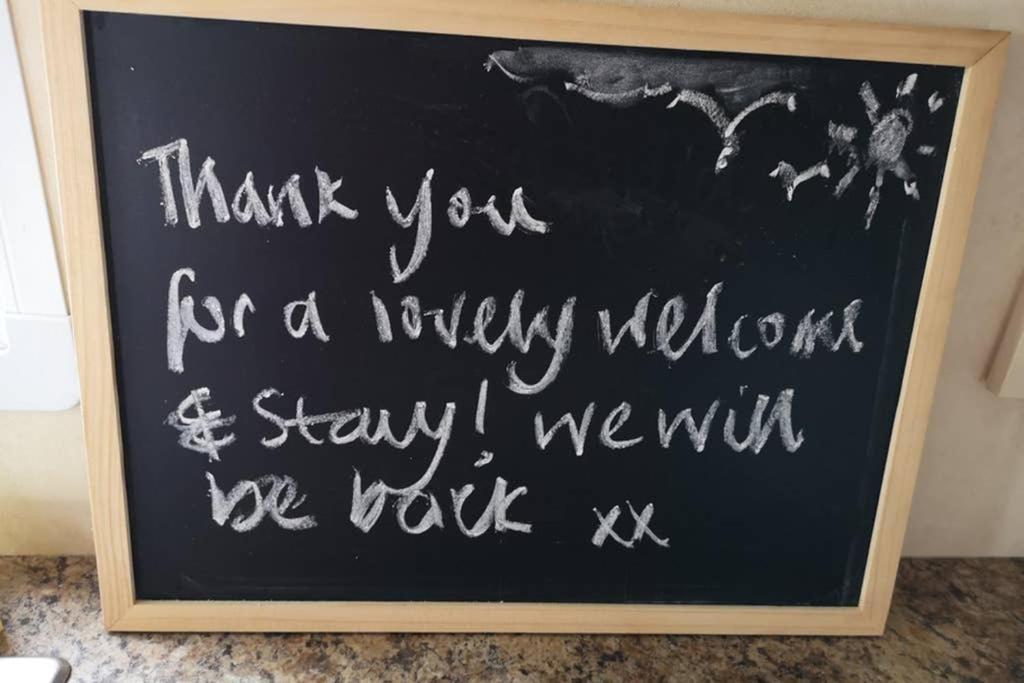 Thank you
for a lovely welcome
& Stay! we will
be back xx